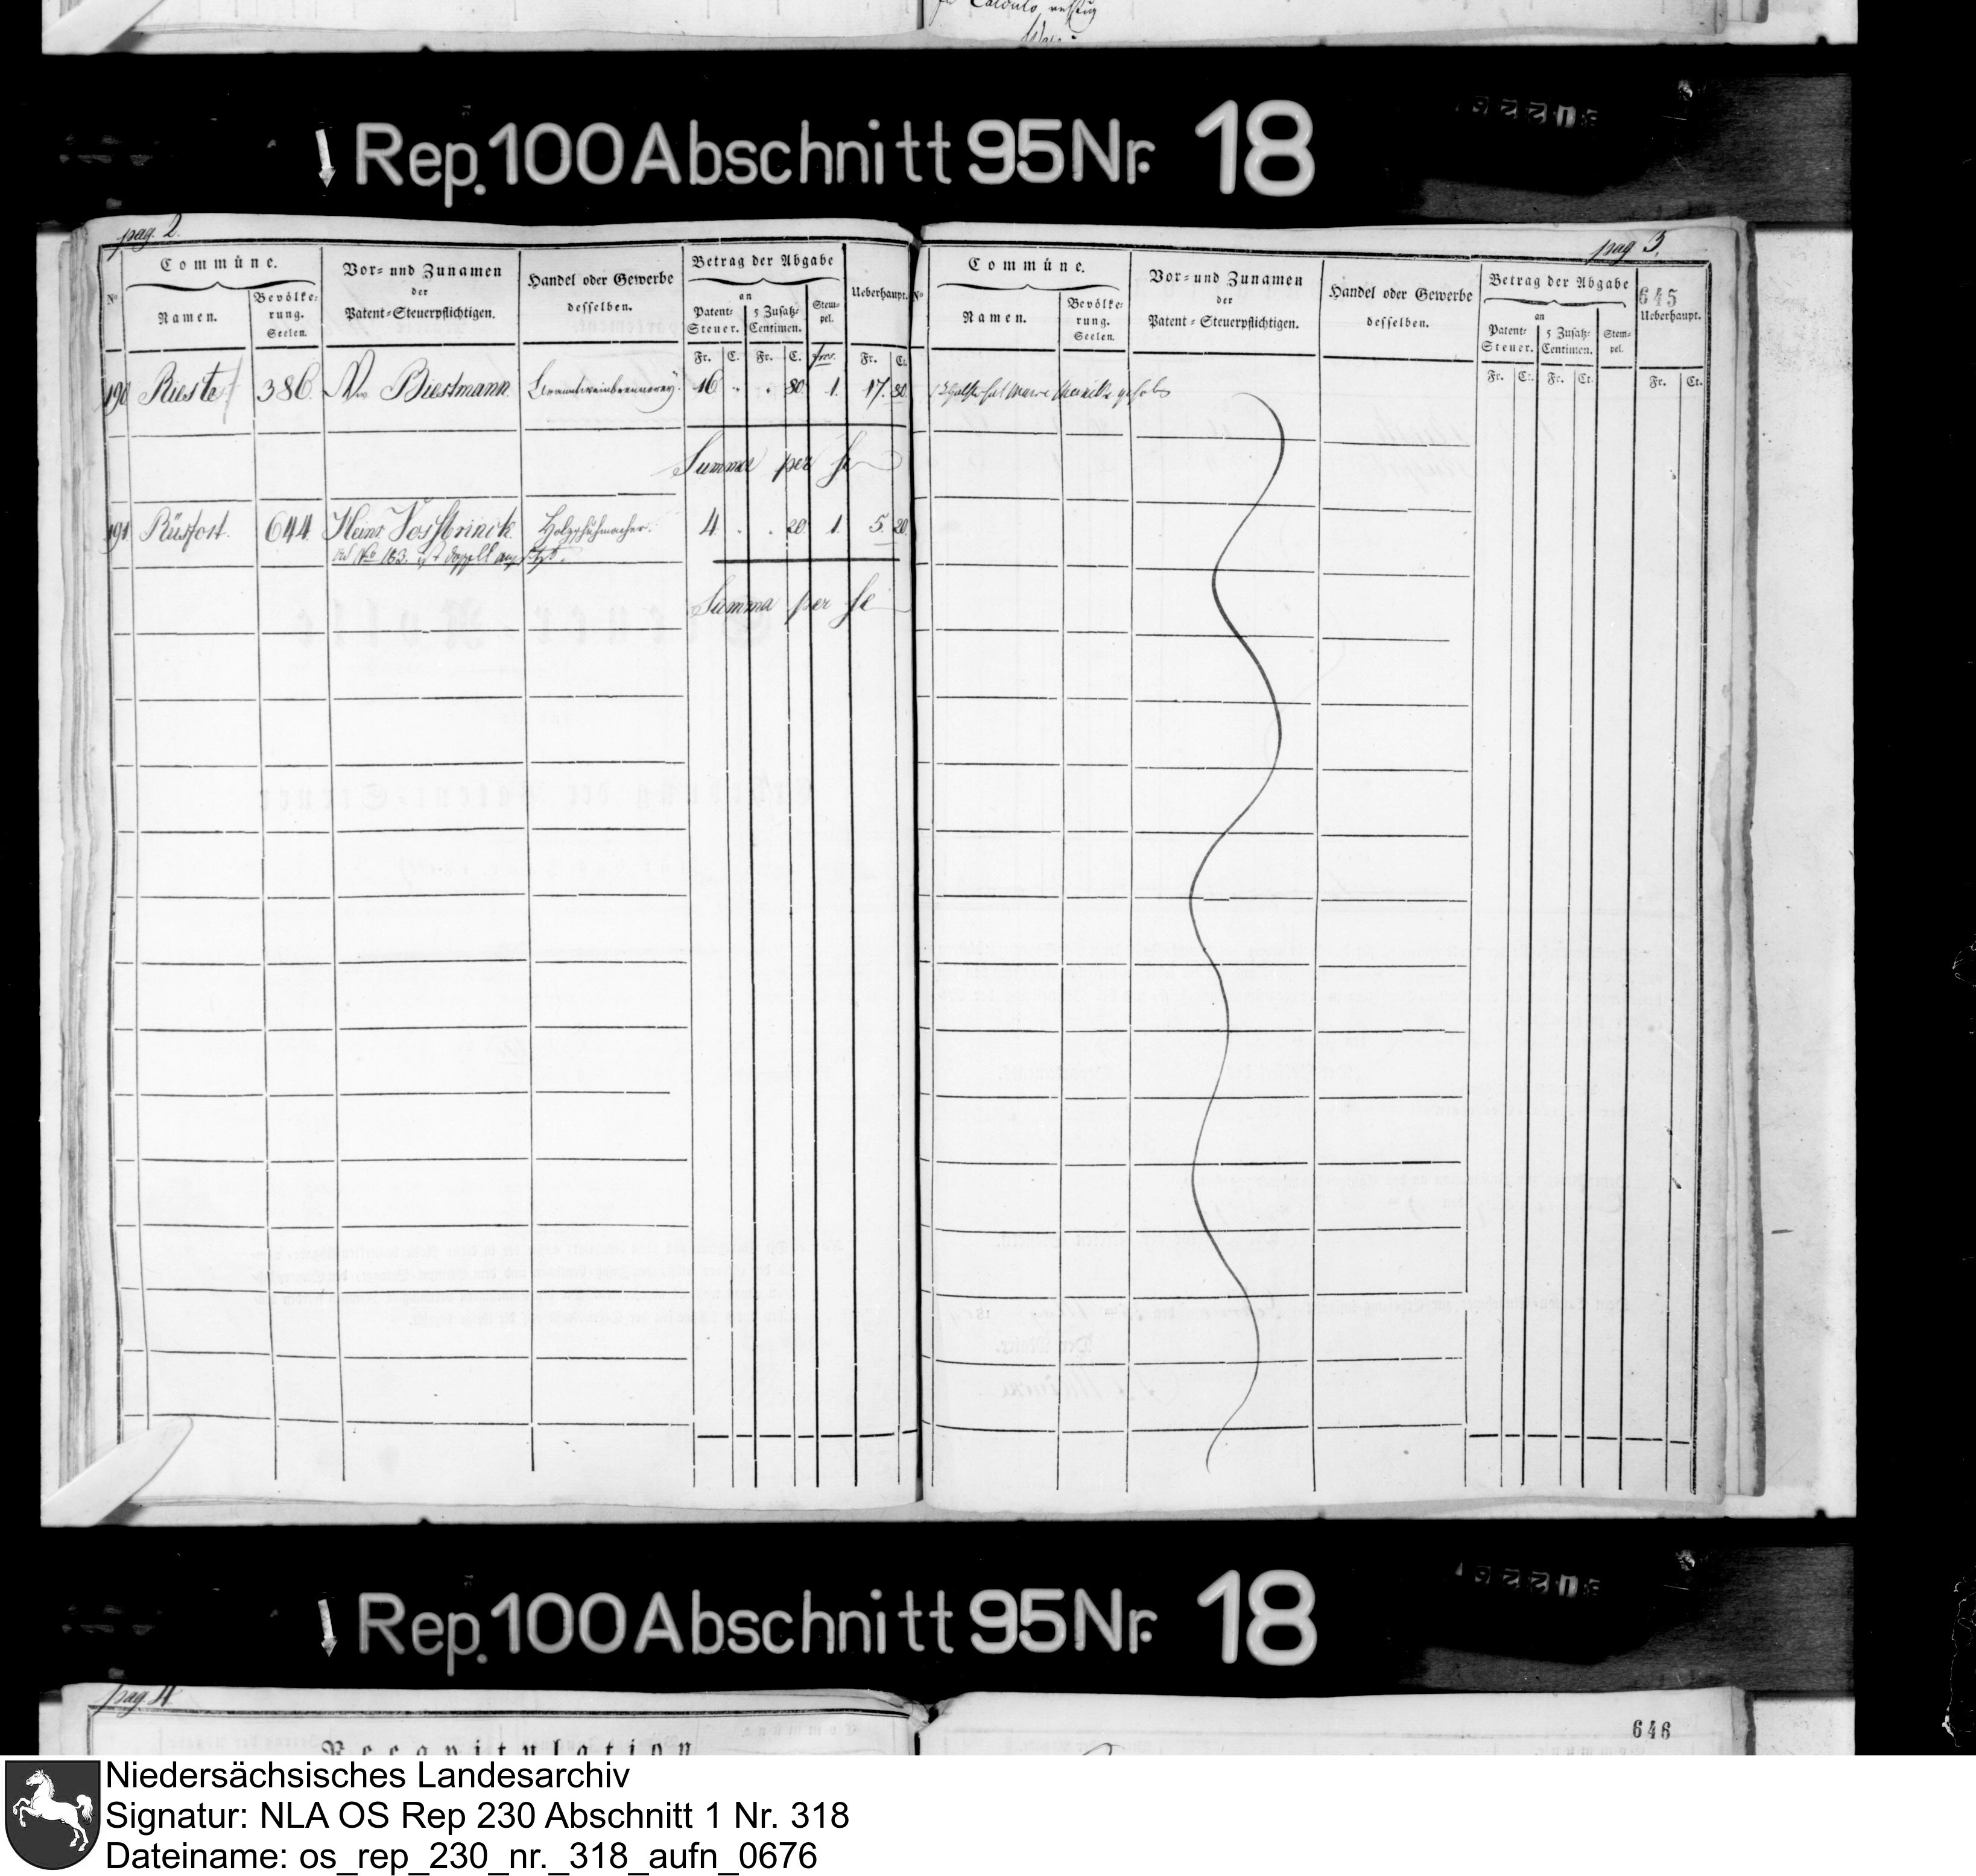 fr Calculo
Rep. 100 Abschnitt 95 Nr. 18
pag. 2.
Commüne.
Vor- und Zunamen
der
Patent-Steuerpflichtigen.
Handel oder Gewerbe
desselben.
Betrag der Abgabe
an
Ueberhaupt.
No
Namen.
Bevölke-
rung.
Seelen.
Patent-
Steuer.
5 Zusatz-
Centimen.
Stem-
pel.
Fr. C. Fr. C. Frcs. Fr. Ct.
190 Rieste 386. Biestmann Branntweinbrennerey. 16 . . 80. 1. 17. 80.
Summa per se
191 Rüsfort. 644 Heinr Vossbrinck Holzschuhmacher. 4 . . 20. 1. 5 20.
ad No 183. ist doppelt
Summa per se
pag 3.
645
Commüne.
Vor- und Zunamen
der
Patent-Steuerpflichtigen.
Handel oder Gewerbe
desselben.
Betrag der Abgabe
an
Ueberhaupt.
No
Namen.
Bevölke-
rung.
Seelen.
Patent-
Steuer.
5 Zusatz-
Centimen.
Stem-
pel.
Fr. Ct. Fr. Ct. Fr. Ct.
Rep. 100 Abschnitt 95 Nr. 18
pag. 4.
646
Recapitulation
Niedersächsisches Landesarchiv
Signatur: NLA OS Rep 230 Abschnitt 1 Nr. 318
Dateiname: os_rep_230_nr._318_aufn_0676